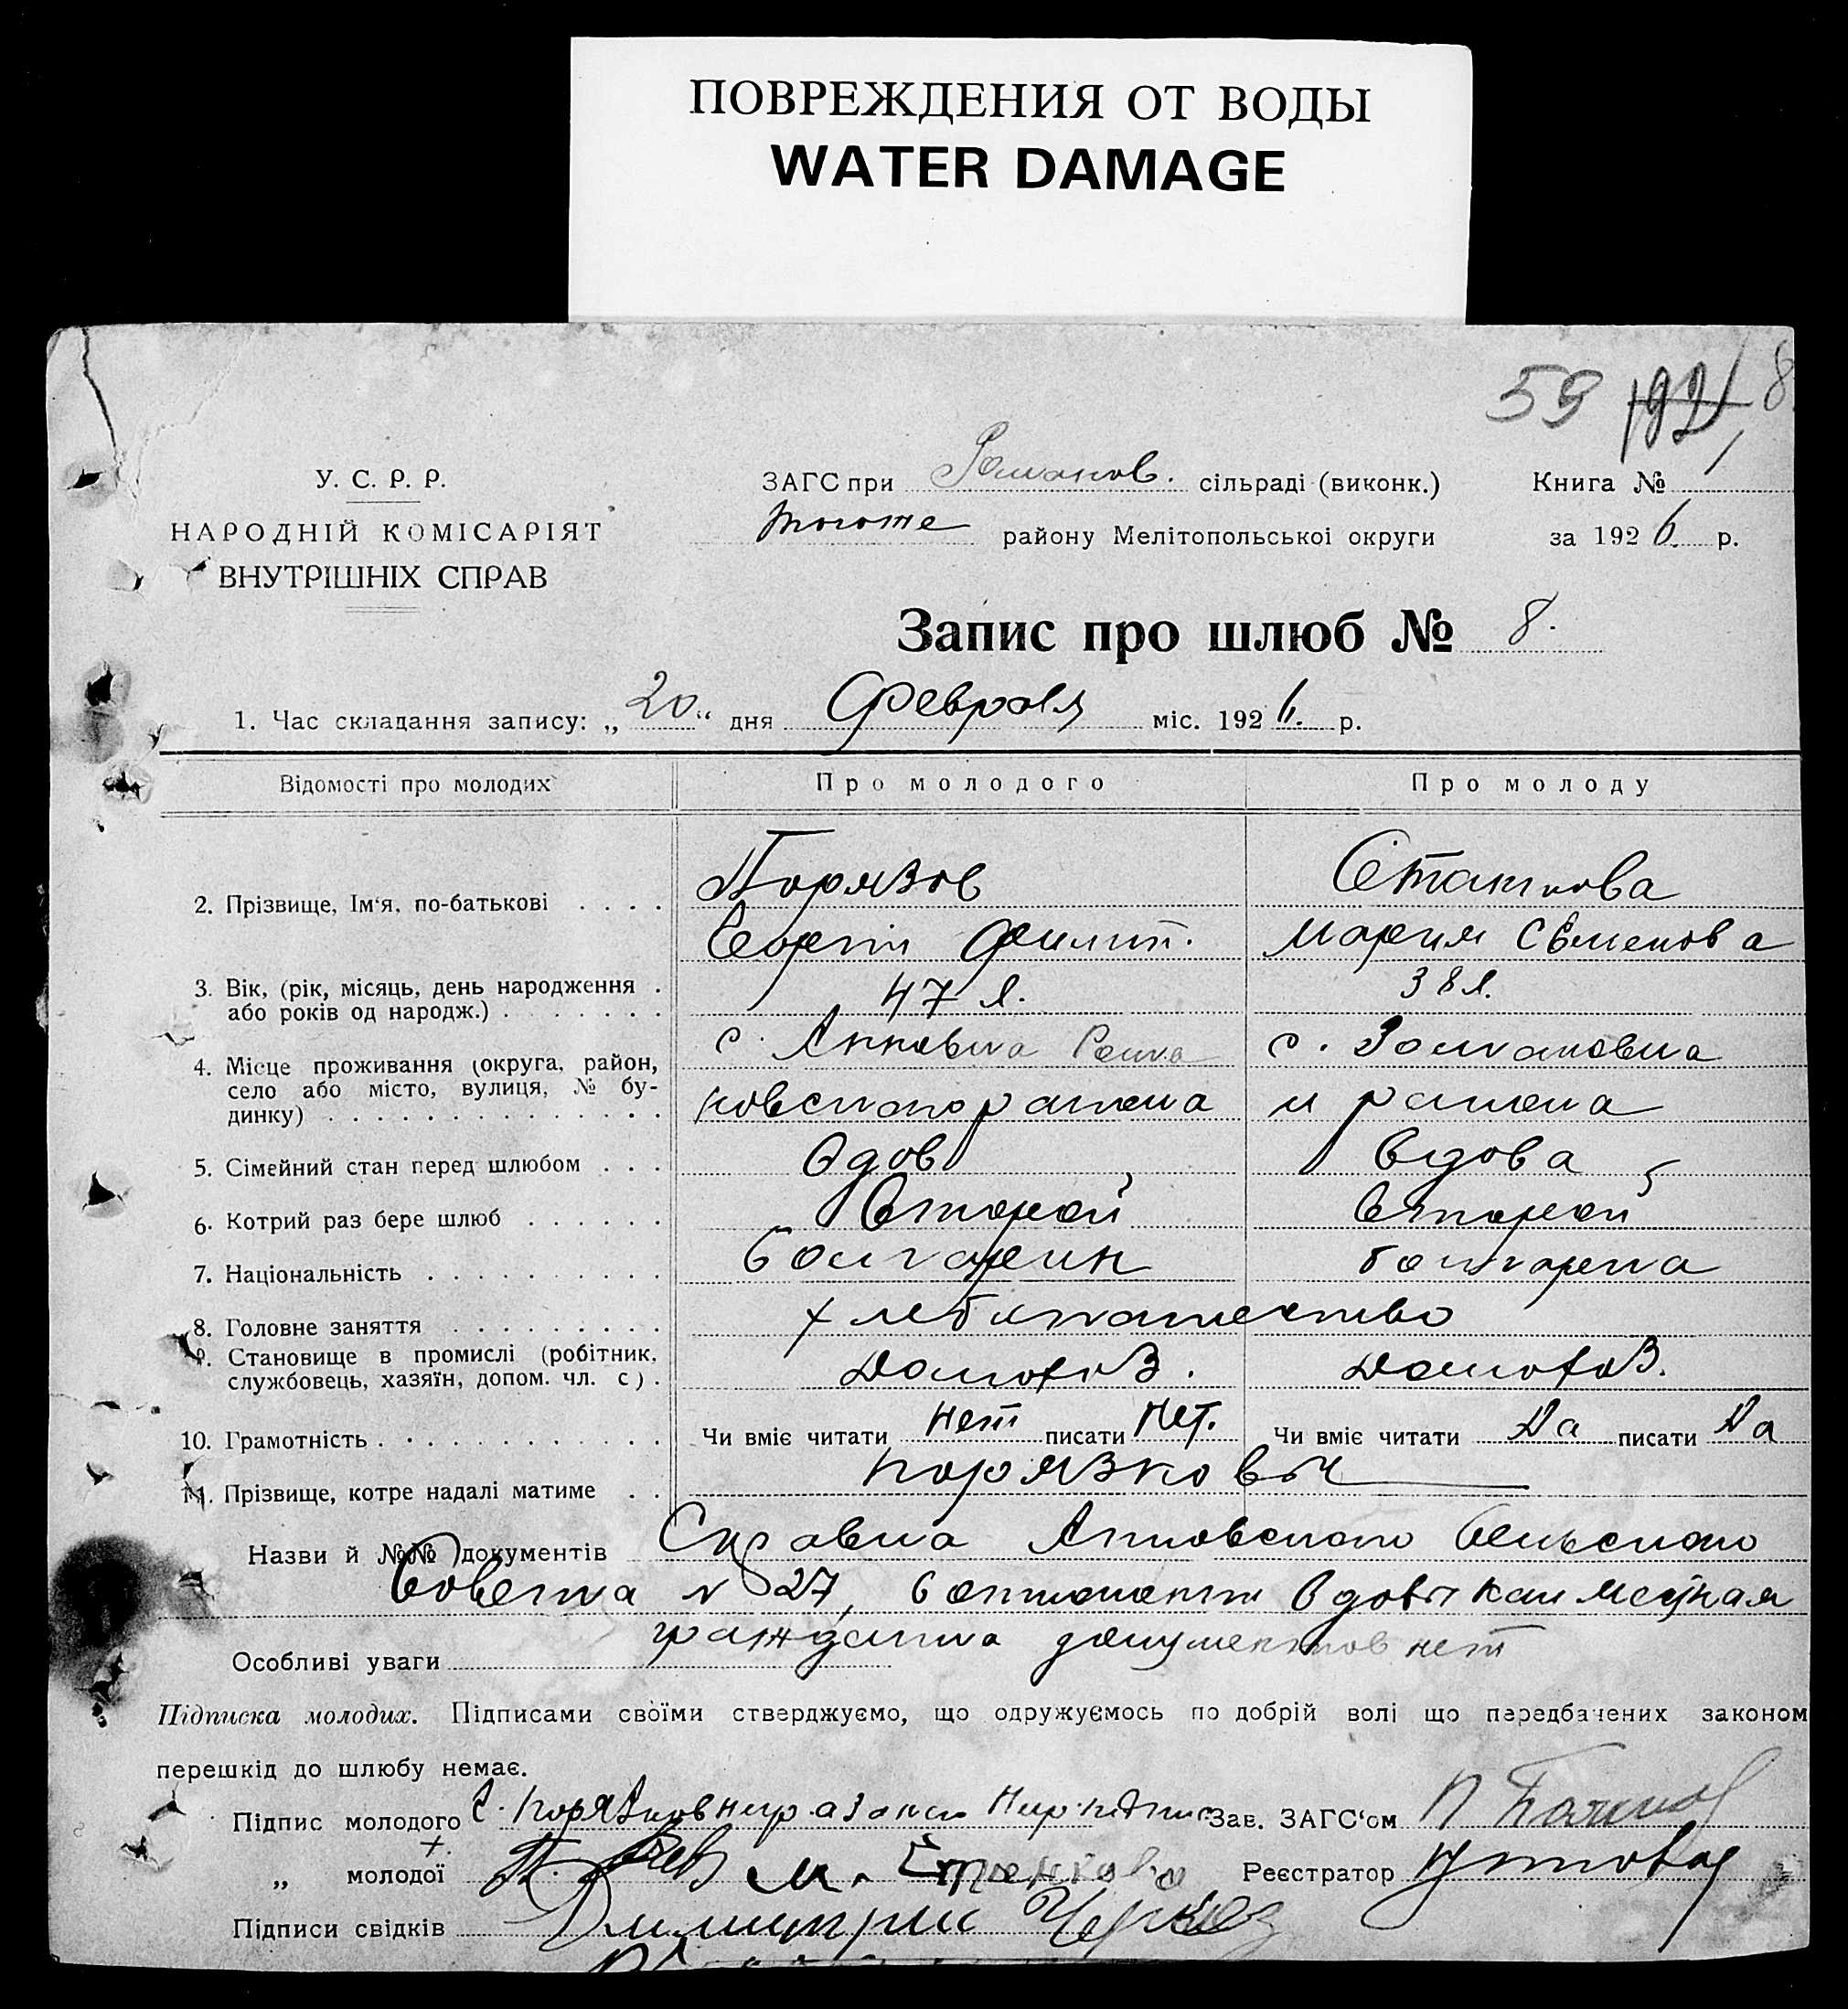 ПОВРЕЖДЕНИЯ ОТ ВОДЫ
WATER DAMAGE
59 192 8
У. С. Р. Р.
НАРОДНІЙ КОМІСАРІЯТ
ВНУТРІШНІХ СПРАВ
ЗАГС при Романов. сільраді (виконк.)
Книга № 1
тогоже району Мелітопольської округи
за 1926 р.
Запис про шлюб № 8.
1. Час складання запису: „20“ дня Февраля міс. 1926. р.
Відомості про молодих
Про молодого
Про молоду
2. Прізвище, Ім‘я, по-батькові
Порязов
Станкова
Георгий Филип.
Мария Семенова
3. Вік, (рік, місяць, день народження
або років од народж.)
47 л.
38 л.
4. Місце проживання (округа, район,
село або місто, вулиця, № бу-
динку)
с. Анновка Рома
новского района
с. Романовка
и района
5. Сімейний стан перед шлюбом
Вдов
Вдова
6. Котрий раз бере шлюб
Второй
Второй
7. Національність
болгарин
болгарка
8. Головне заняття
хлебопашество
9. Становище в промислі (робітник,
службовець, хазяїн, допом. чл. с)
Домохоз.
Домохоз.
10. Грамотність
Чи вміє читати нет писати нет.
Чи вміє читати Да писати Да
11. Прізвище, котре надалі матиме
Порязковы
Назви й №№ документів Справка Анновского Сельского
Совета № 27, в отношении вдовы как местная
гражданка документов нет
Особливі уваги
Підписка молодих. Підписами своїми стверджуємо, що одружуємось по добрій волі що передбачених законом
перешкід до шлюбу немає.
Підпис молодого
Зав. ЗАГС‘ом
„ молодої
М. Станкова
Реєстратор
Підписи свідків Димитрий Черкез